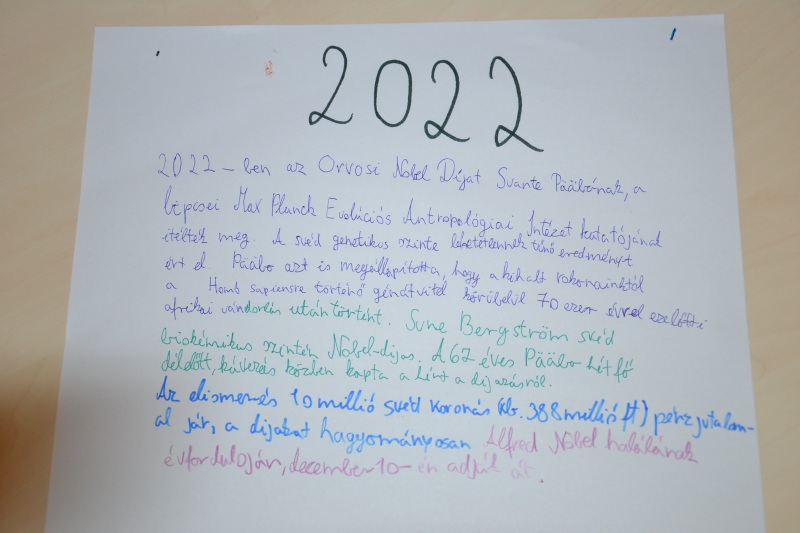 2022
2022 - ben az Orvosi Nobel Díjat Svante Pääbónak, a
lipcsei Max Planck Evolúciós Antropológiai Intézet kutatójának
ítélték meg. A svéd genetikus szinte lehetetlennek tűnő eredményt
ért el. Pääbo azt is megállapította, hogy a kihalt rokonainktól
a Homo sapiensre történő génátvitel körülbelül 70 ezer évvel ezelőtti
afrikai vándorlás után történt. Sune Bergström svéd
biokémikus szintén Nobel-díjas. A 67 éves Pääbo hétfő
délelőtt, kávézás közben kapta a hírt a díjazásról.
Az elismerés 10 millió svéd koronás (kb. 388 millió ft) pénzjutalom-
al jár, a díjakat hagyományosan Alfred Nobel halálának
évfordulóján, december 10-én adják át.